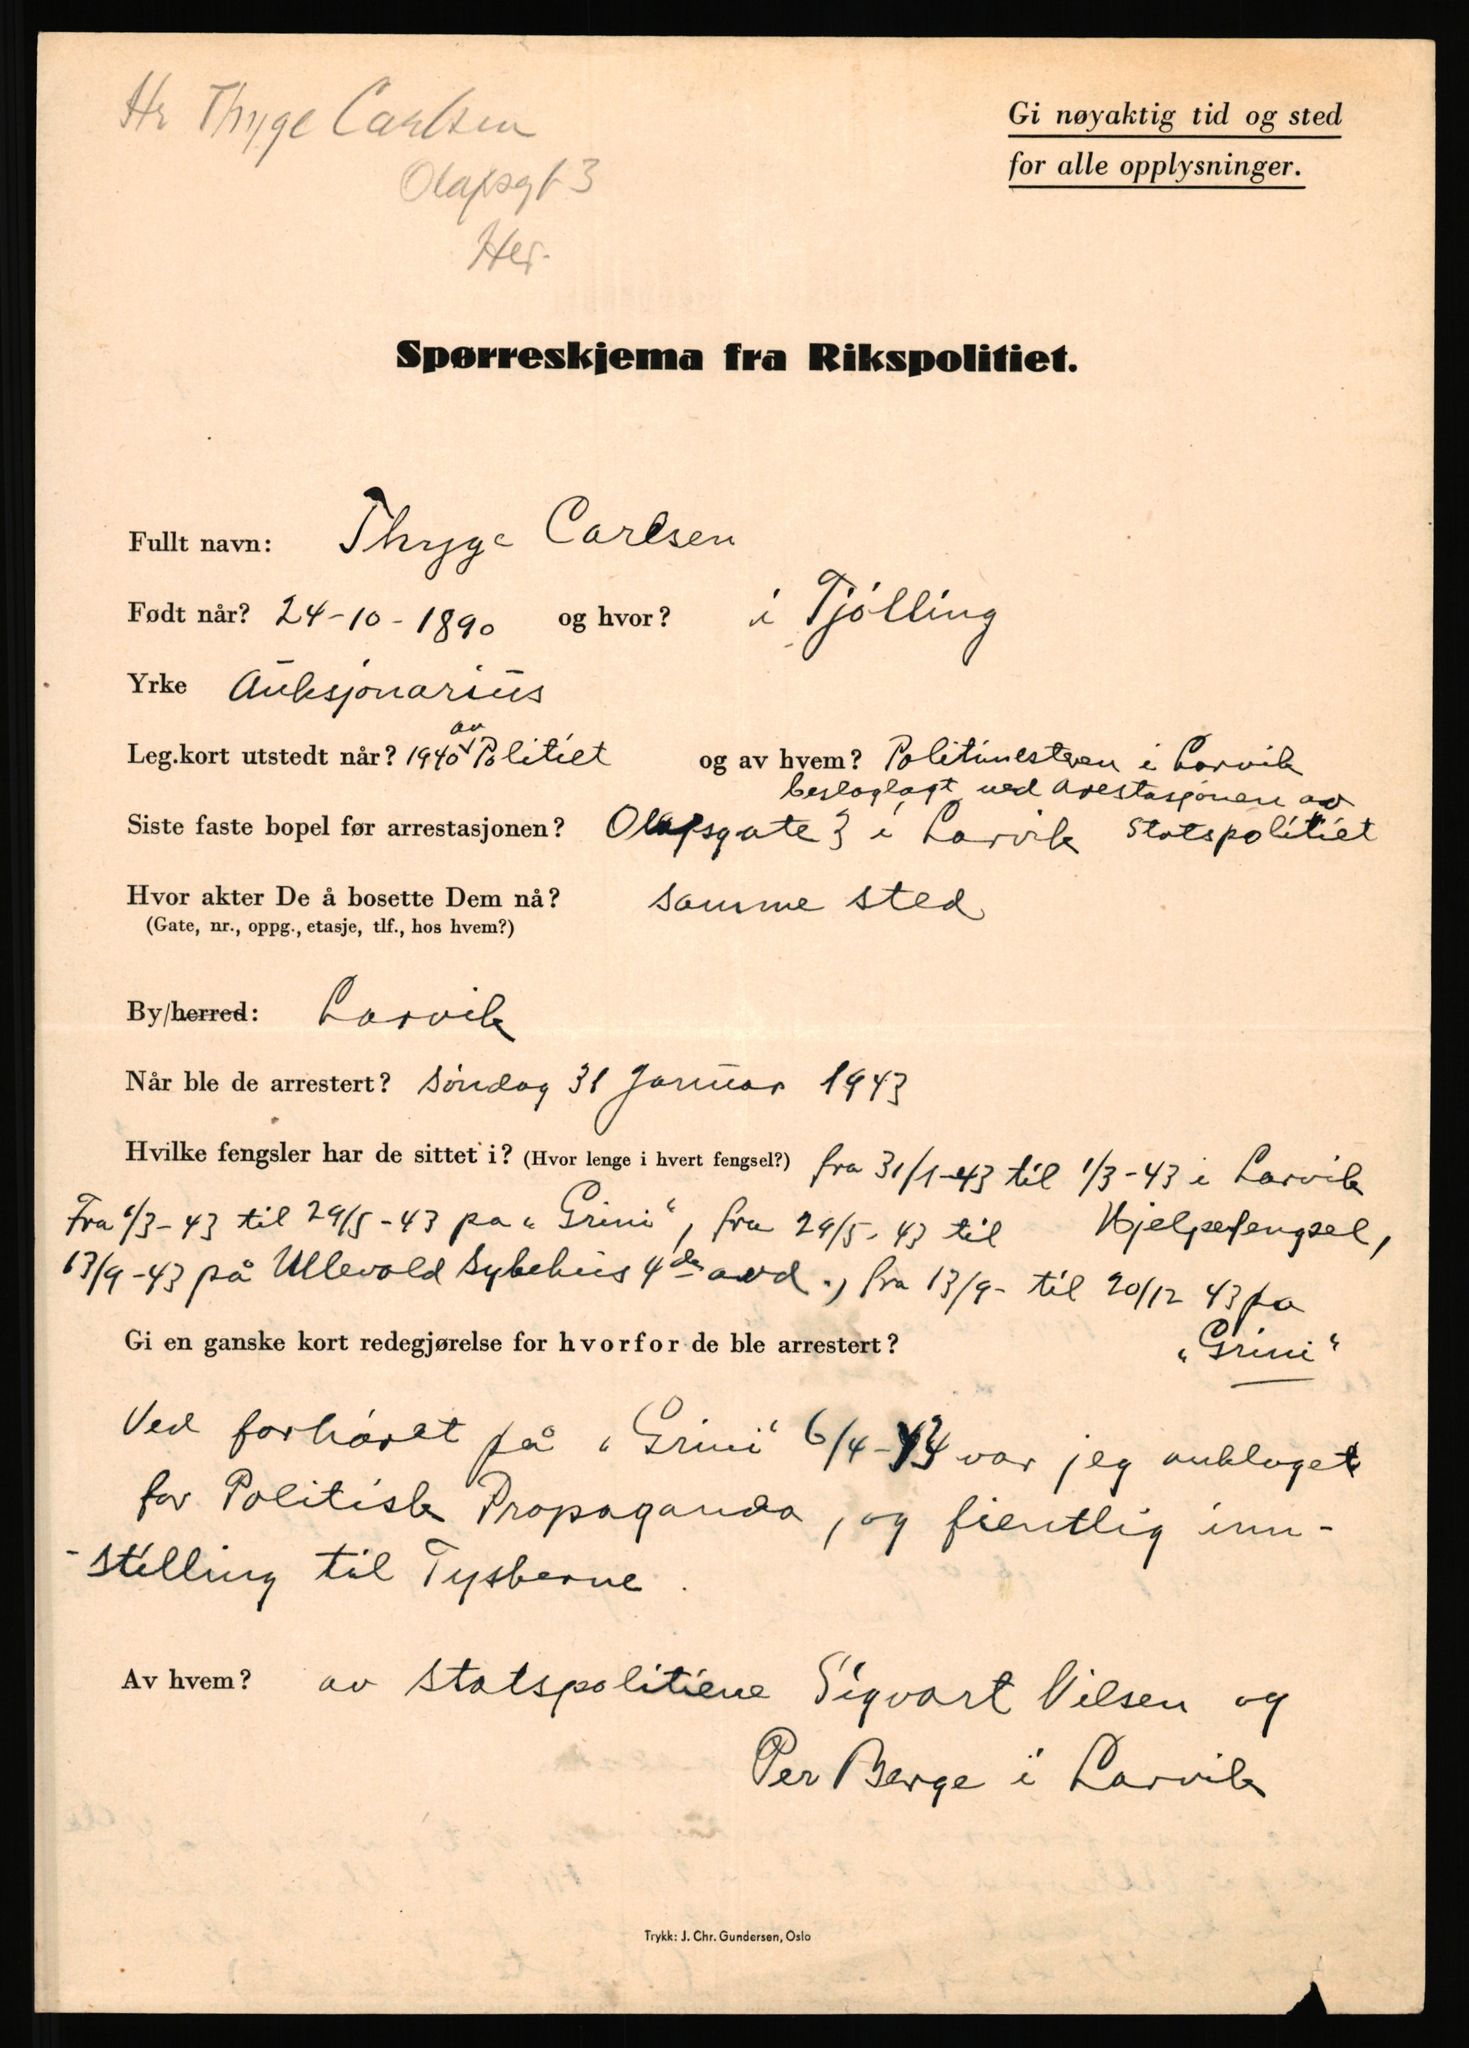 Hr Thyge Carlsen
Olafsgt 3
Her.
Gi nøyaktig tid og sted
for alle opplysninger.
Spørreskjema fra Rikspolitiet.
Fullt navn: Thyge Carlsen
Født når? 24-10-1890 og hvor? i Tjølling
Yrke Auksjonarius
Leg.kort utstedt når? 1940 av Politiet og av hvem? Politimesteren i Larvik
beslaglagt ved arestasjonen av
Statspolitiet
Siste faste bopel før arrestasjonen? Olafsgate 3 i Larvik
Hvor akter De å bosette Dem nå? samme sted
(Gate, nr., oppg., etasje, tlf., hos hvem?)
By/herred: Larvik
Når ble de arrestert? Søndag 31 Januar 1943
Hvilke fengsler har de sittet i? (Hvor lenge i hvert fengsel?) fra 31/1-43 til 1/3-43 i Larvik
Hjelpefengsel,
Fra 1/3-43 til 29/5-43 pa „Grini“, fra 29/5-43 til
13/9-43 på Ullevold Sykehus 4de avd., fra 13/9- til 20/12 43 pa
„Grini“
Gi en ganske kort redegjørelse for hvorfor de ble arrestert?
Ved forhøret på „Grini“ 6/4-43 var jeg anklaget
for Politisk Propaganda, og fientlig inn-
-stilling til Tyskerne.
Av hvem? av statspolitiene Sigvart Nilsen og
Per Berge i Larvik
Trykk: J. Chr. Gundersen, Oslo